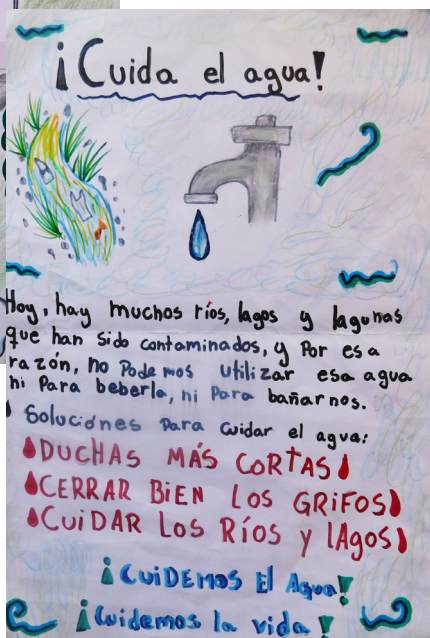 ¡Cuida el agua!
Hoy, hay muchos ríos, lagos y lagunas
que han sido contaminados, y Por esa
razón, no Podemos utilizar esa agua
ni Para beberla, ni Para bañarnos.
Soluciones Para cuidar el agua:
DUCHAS MÁS CORTAS
CERRAR BiEN LOS GRiFOS
CUiDAR LOS Ríos y lAgos
¡CuiDEMos El Agua!
¡Cuidemos la vida!